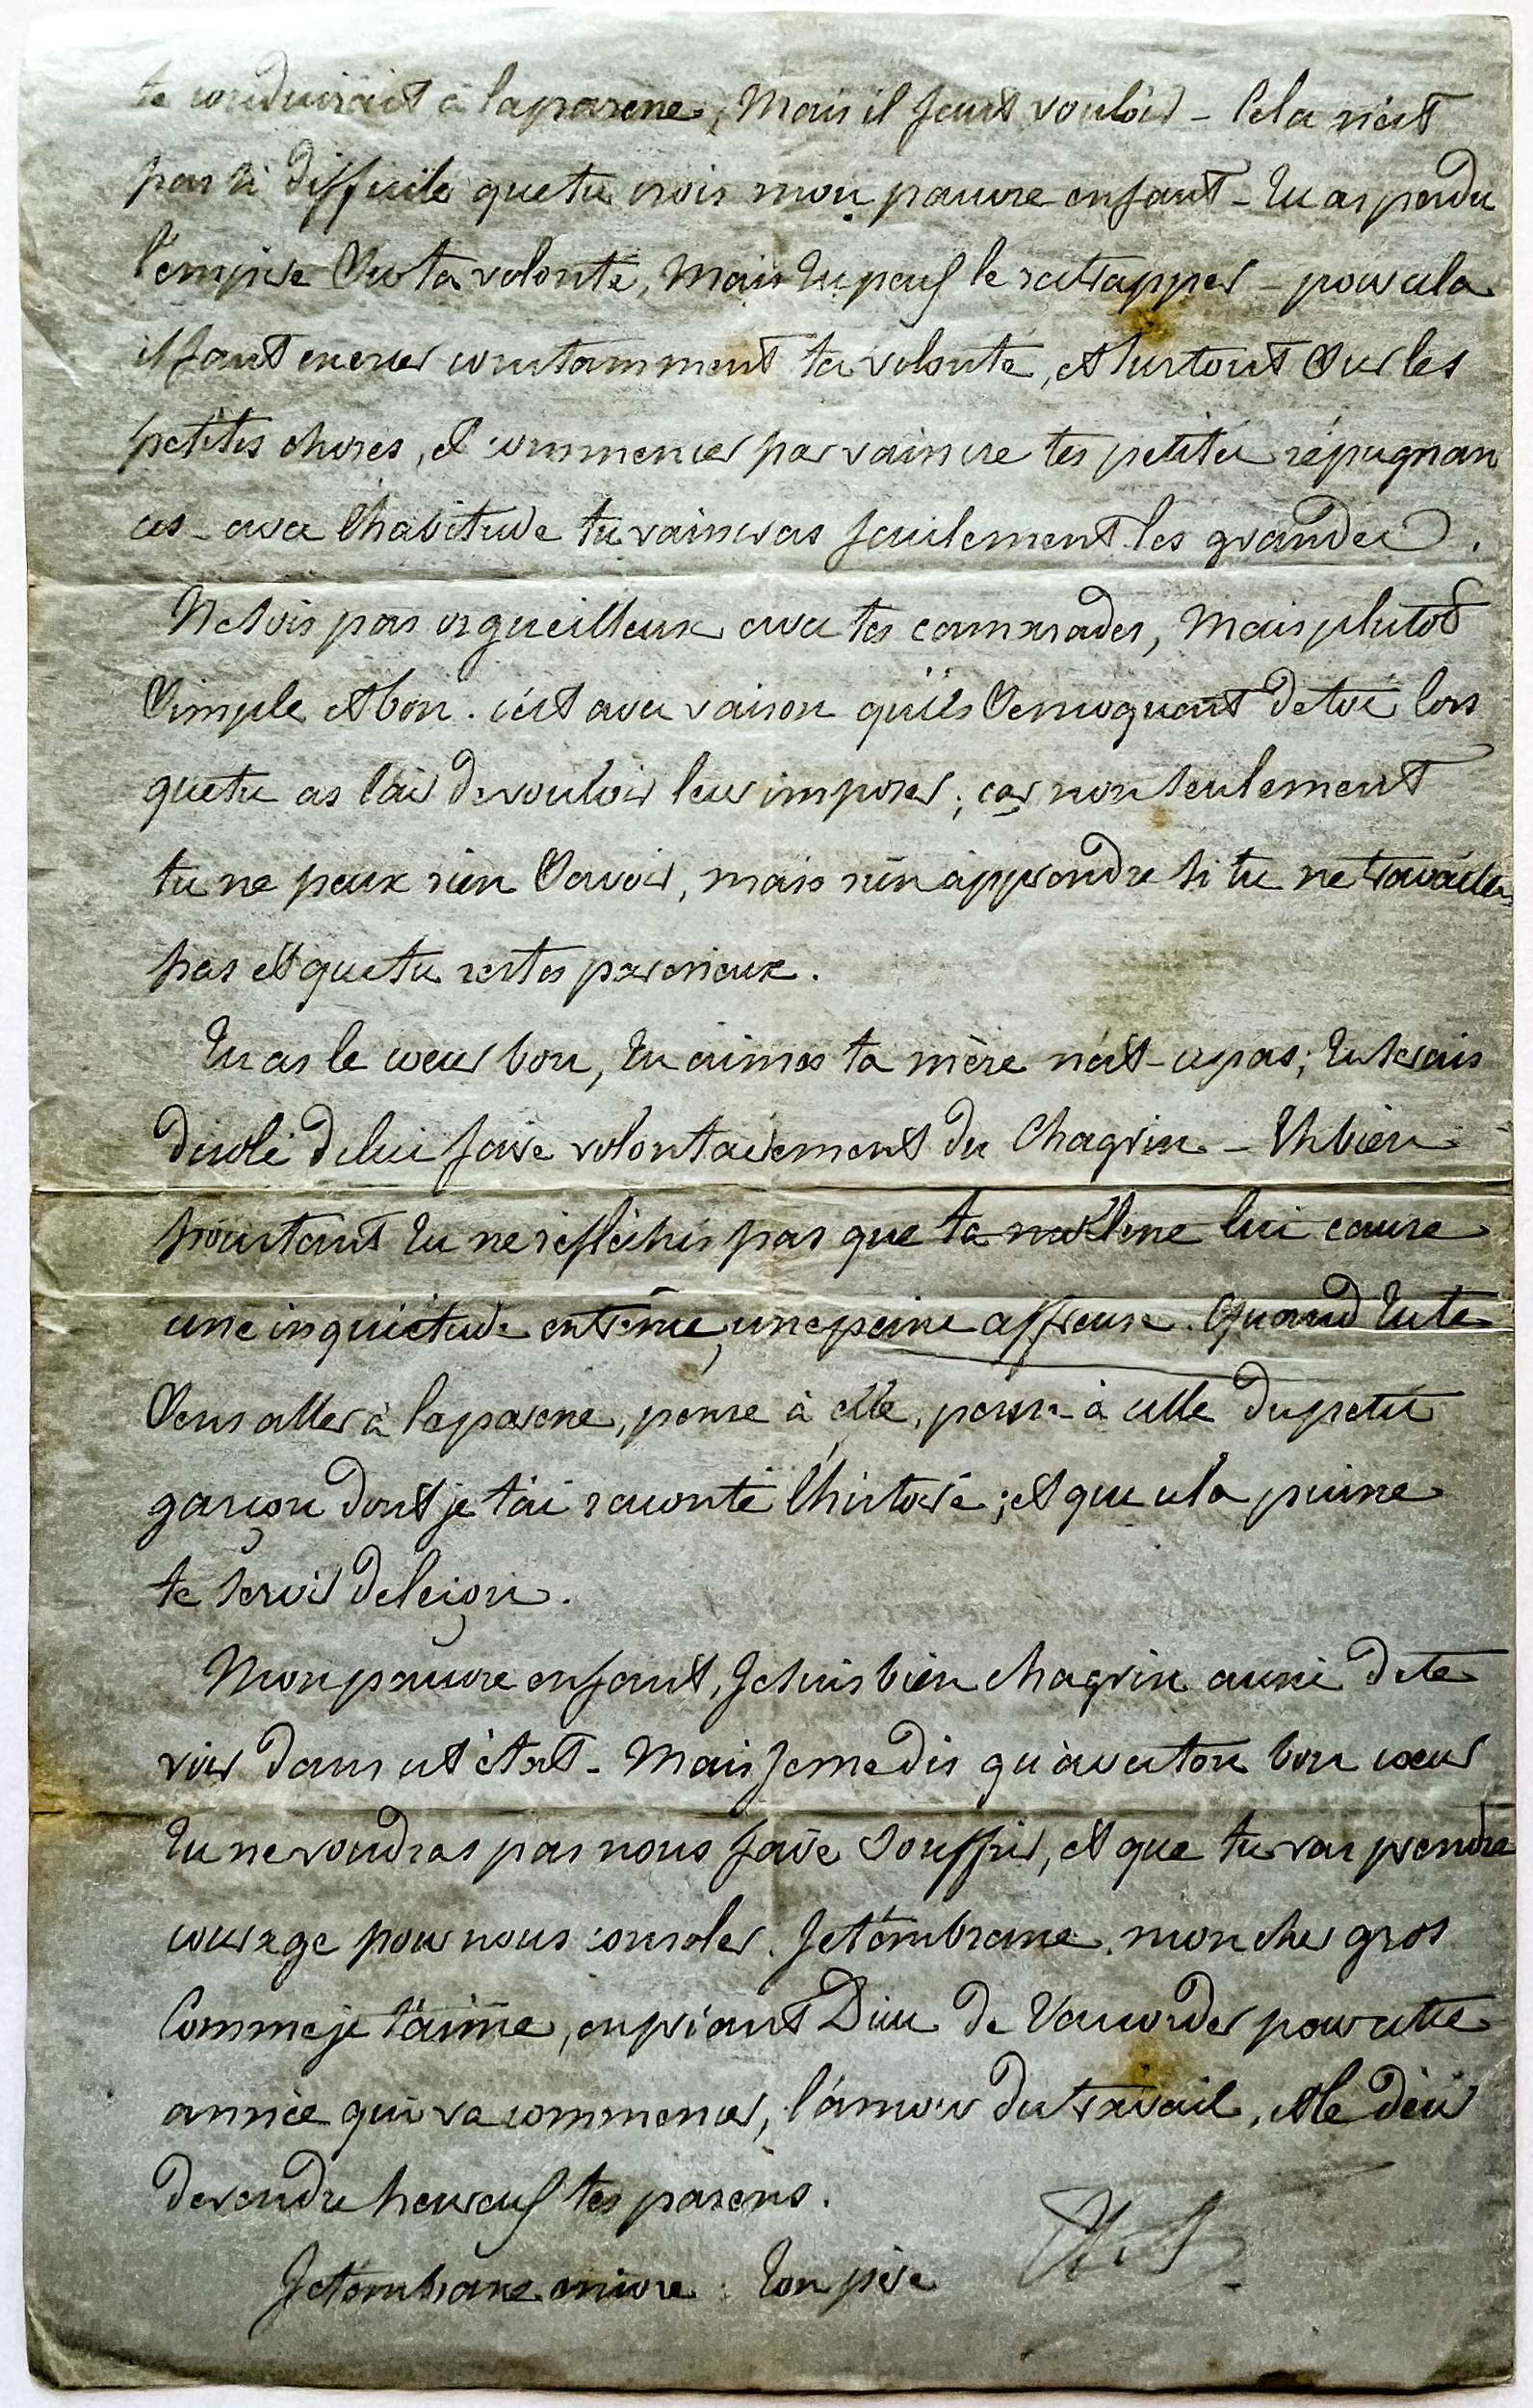 te conduirait à la paresse, Mais il faut vouloir - Cela n'est
pas si difficile que tu crois mon pauvre enfant - Tu as perdu
l'empire sur ta volonté, Mais tu peux le rattapper - pour cela
il faut exercer constamment ta volonté, et surtout sur les
petites choses, et commencer par vaincre tes petites répugnan
ces - avec l'habitude tu vaincras facilement les grandes.
Ne sois pas orgueilleux avec tes camarades, Mais plutot
simple et bon. c'est avec raison qu'ils se moquent de toi lors
que tu as l'air de vouloir leur imposer; car non seulement
tu ne peux rien savoir, mais rien apprendre si tu ne travailles
pas et que tu restes paresseux.
Tu as le coeur bon, tu aimes ta mère n'est-ce pas; tu serais
désolé de lui faire volontairement du chagrin - Eh bien
pourtant tu ne réfléchis pas que ta mollesse lui cause
une inquiétude extrême, une peine affreuse. Quand tu te
sens aller à la paresse, pense à elle, pense à celle du petit
garçon dont je t'ai raconté l'histoire; et que cela puisse
te servir de leçon.
Mon pauvre enfant, Je suis bien chagrin aussi de te
voir dans cet état - Mais Je me dis qu'avec ton bon coeur
Tu ne voudras pas nous faire souffrir, et que tu vas prendre
courage pour nous consoler. Je t'embrasse, mon cher gros
Comme je t'aime, en priant Dieu de t'accorder pour cette
année qui va commencer, l'amour du travail, et le désir
de rendre heureux tes parens.
Je t'embrasse encore. Ton père